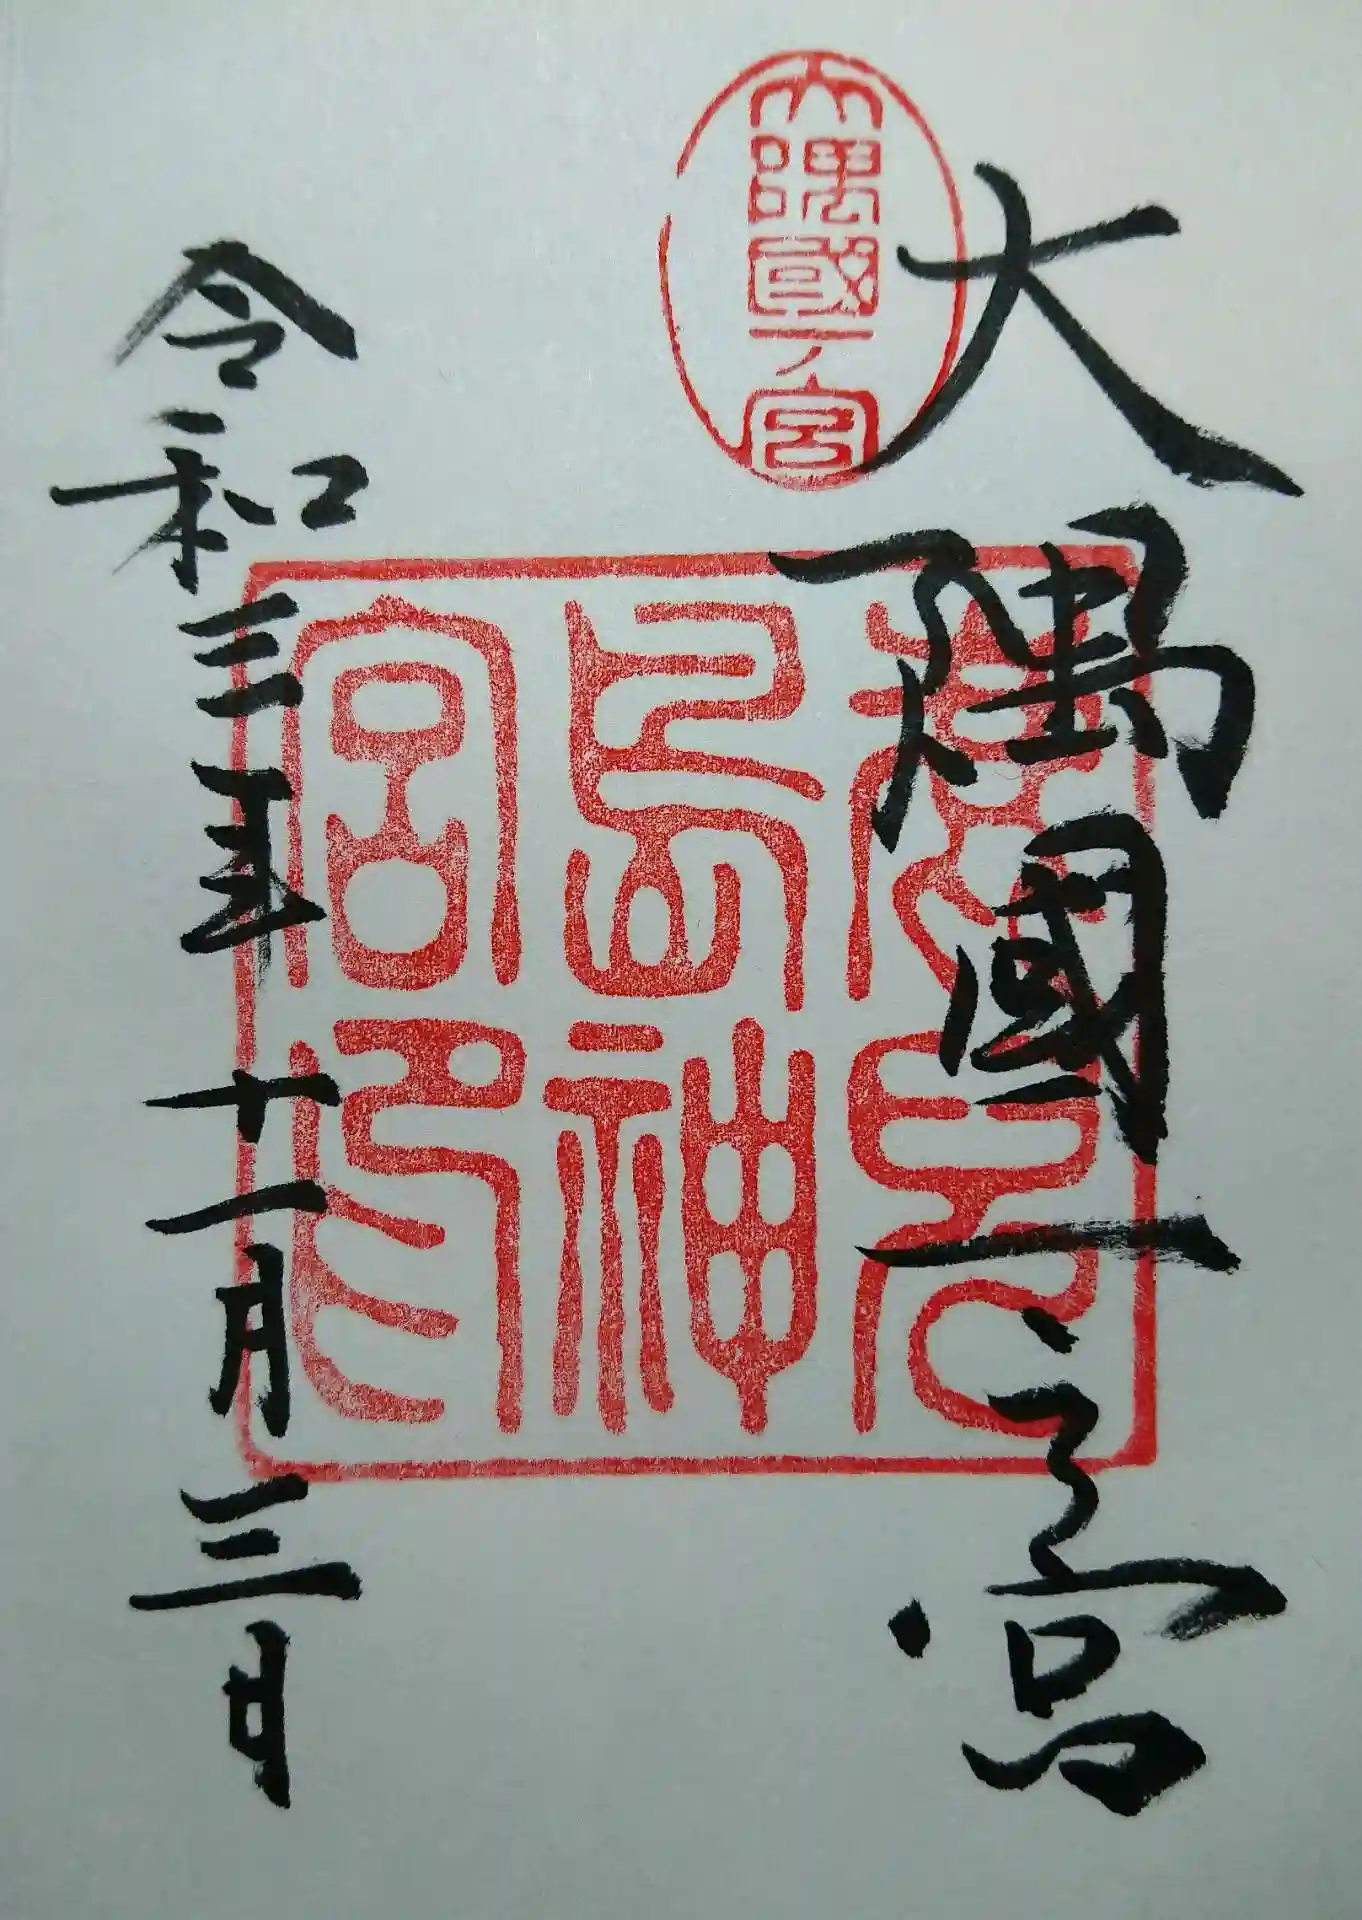 大隅國一ノ宮
大隅國一之宮
鹿兒
島神
宮印
令和三年十一月三日